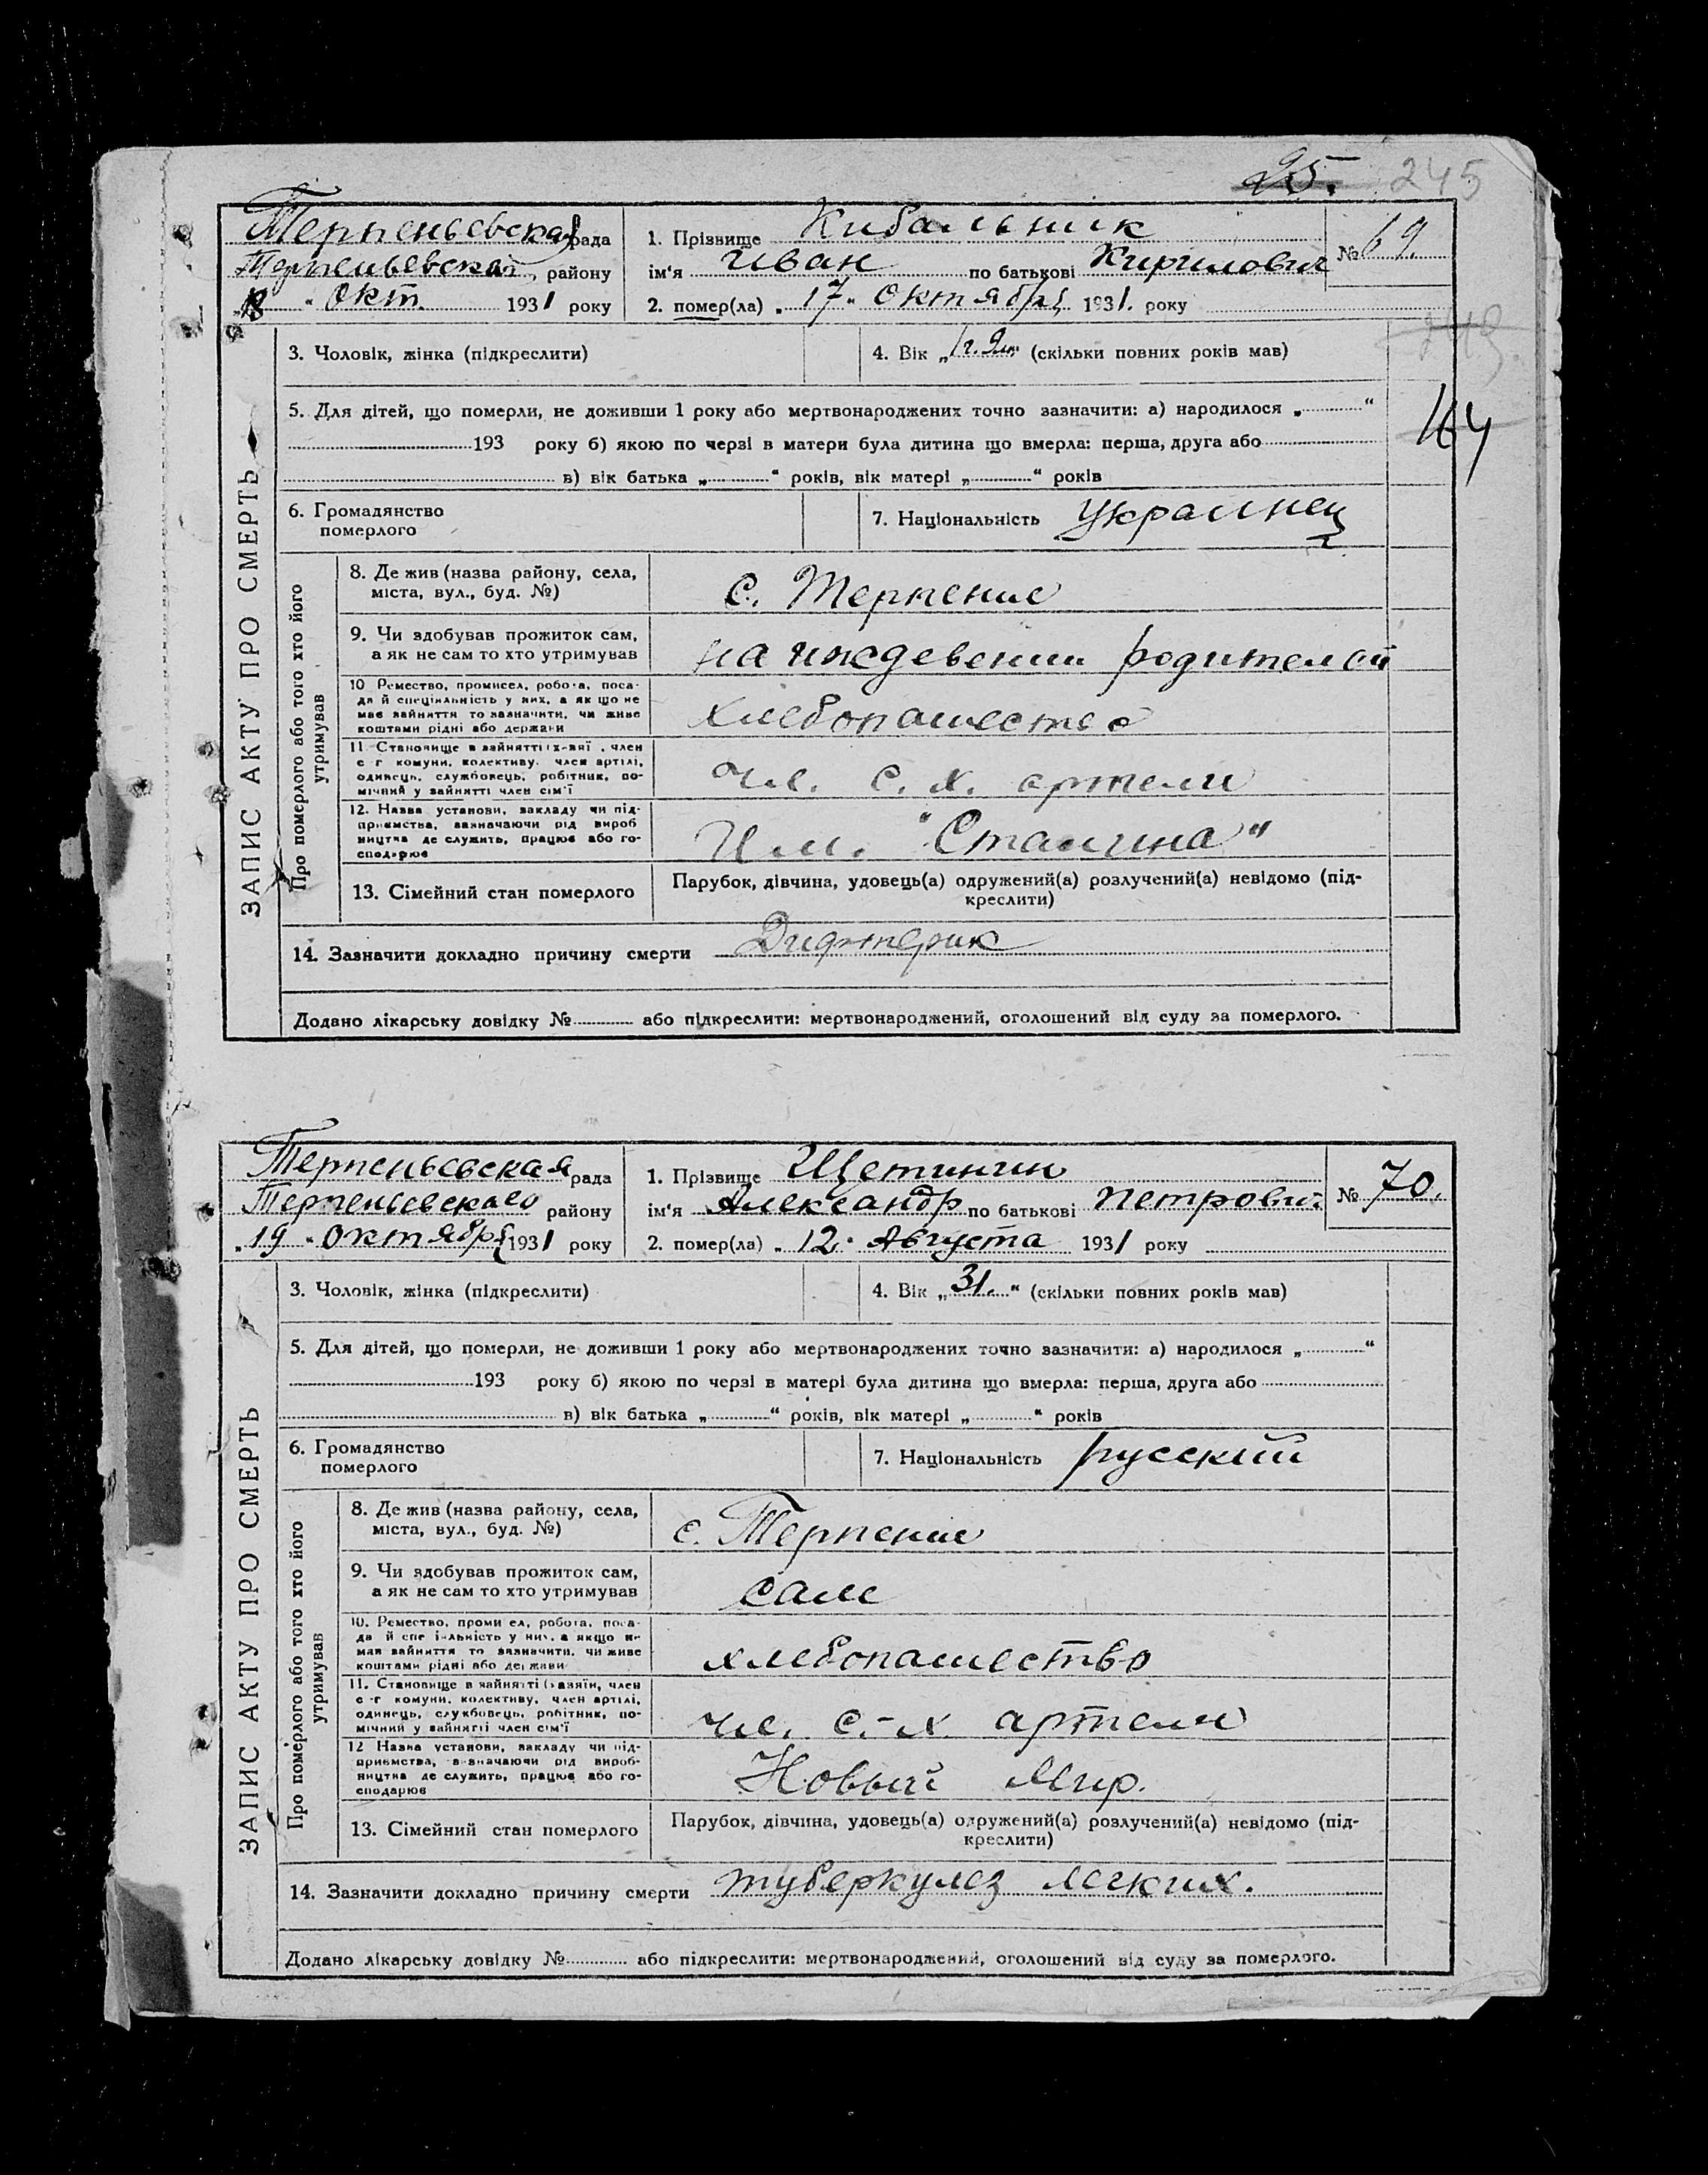 25.
245
Терпеньевская рада
Терпеньевская району
18 " Окт. 1931 року
1. Прізвище Кибальник
ім'я Иван по батькові Кирилович
2. помер(ла) „ 17 " октября 1931. року
№ 69.
3. Чоловік, жінка (підкреслити)
4. Вік „ 1 г. 9 м " (скільки повних років мав)
164
5. Для дітей, що померли, не доживши 1 року або мертвонароджених точно зазначити: а) народилося „ "
193 року б) якою по черзі в матери була дитина що вмерла: перша, друга або
в) вік батька „ " років, вік матері „ " років
6. Громадянство
померлого
7. Національність украинец
ЗАПИС АКТУ ПРО СМЕРТЬ
Про померлого або того хто його
утримував
8. Де жив (назва району, села,
міста, вул., буд. №)
с. Терпение
9. Чи здобував прожиток сам,
а як не сам то хто утримував
на иждевении родителей
10 Ремество, промисел, робота, поса-
да й спеціяльність у них, а як що не
має зайняття то зазначити, чи живе
коштами рідні або держави
хлебопашество
11 Становище в зайнятті (х-зяї , член
с г комуни, колективу, член артілі,
одинець, службовець, робітник, по-
мічний у зайнятті член сім'ї
чл. с. х. артели
12. Назва установи, закладу чи під-
приємства, зазначаючи рід вироб
ництва де служить, працює або го-
сподарює
Им. "Сталина"
13. Сімейний стан померлого
Парубок, дівчина, удовець(а) одружений(а) розлучений(а) невідомо (під-
креслити)
14. Зазначити докладно причину смерти Дифтерик
Додано лікарську довідку № або підкреслити: мертвонароджений, оголошений від суду за померлого.
Терпеньевская рада
Терпеньевскаго району
„ 19 " Октября 1931 року
1. Прізвище Щетинин
ім'я Александр по батькові Петрович
2. помер(ла) „ 12. " Августа 1931 року
№ 70.
3. Чоловік, жінка (підкреслити)
4. Вік „ 31. " (скільки повних років мав)
5. Для дітей, що померли, не доживши 1 року або мертвонароджених точно зазначити: а) народилося „ "
193 року б) якою по черзі в матері була дитина що вмерла: перша, друга або
в) вік батька „ " років, вік матері „ " років
6. Громадянство
померлого
7. Національність русский
ЗАПИС АКТУ ПРО СМЕРТЬ
Про померлого або того хто його
утримував
8. Де жив (назва району, села,
міста, вул., буд. №)
с. Терпение
9. Чи здобував прожиток сам,
а як не сам то хто утримував
сам
10. Ремество, проми ел, робота, поса-
да й спе і-льність у них, а якщо не
має зайняття то зазначити, чи живе
коштами рідні або держави
хлебопашество
11. Становище в зайнятті (хазяїн, член
с -г комуни, колективу, член артілі,
одинець, службовець, робітник, по-
мічний у зайнятті член сім'ї
чл. с.-х артели
12 Назва установи, закладу чи під-
приємства, зазначаючи рід вироб-
ництва де служить, працює або го-
сподарює
Новый Мир.
13. Сімейний стан померлого
Парубок, дівчина, удовець(а) одружений(а) розлучений(а) невідомо (під-
креслити)
14. Зазначити докладно причину смерти туберкулез легких.
Додано лікарську довідку № або підкреслити: мертвонароджений, оголошений від суду за померлого.